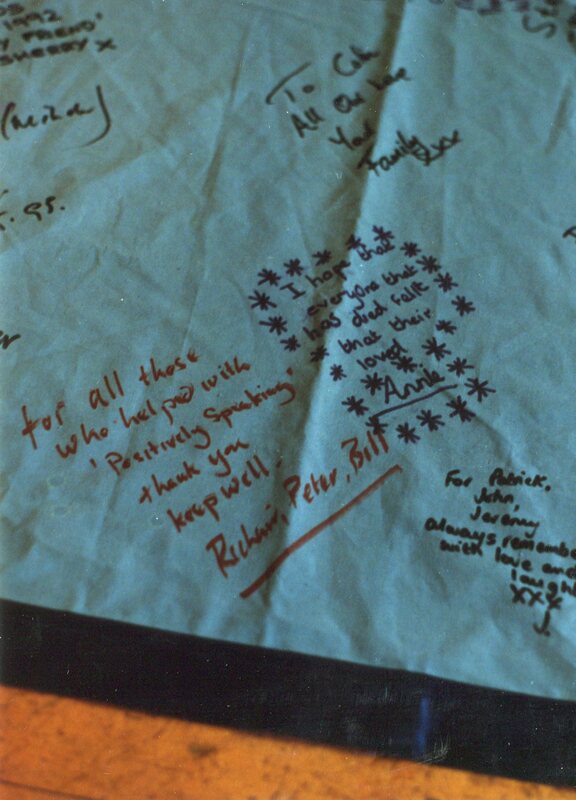 1992
SHERRY X
To Colin
All Our Love
Your
Family xxx
I hope that
everyone that
has died fallt
that their
loved
Annie
for all those
who helped with
'Positively Speaking'
thank you
keep well.
Richard, Peter, Bill
For Patrick,
John,
Jeremy
always remembe
with love and
laught
xxx
J.